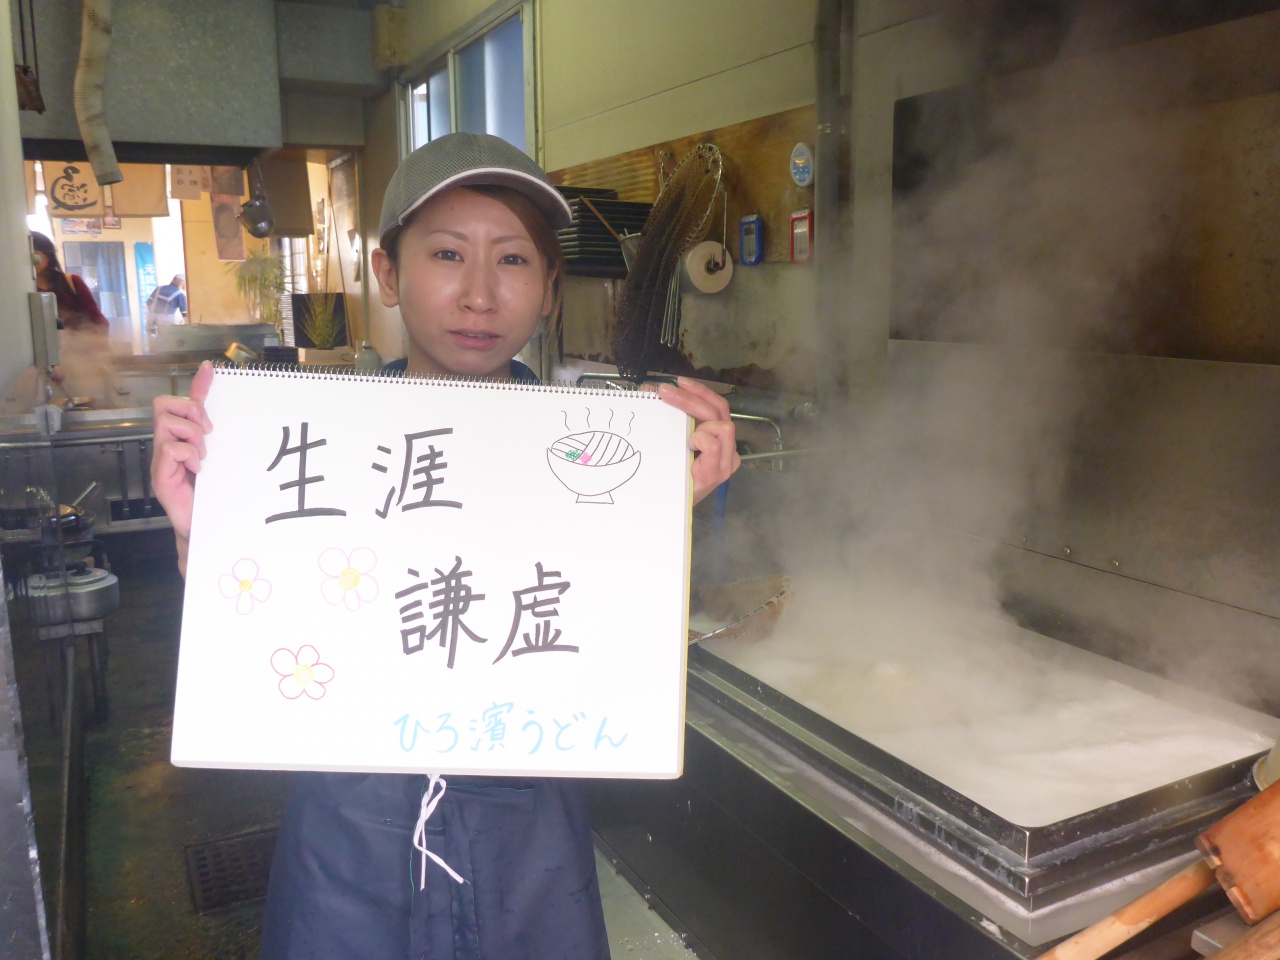 生涯
謙虚
ひろ濱うどん